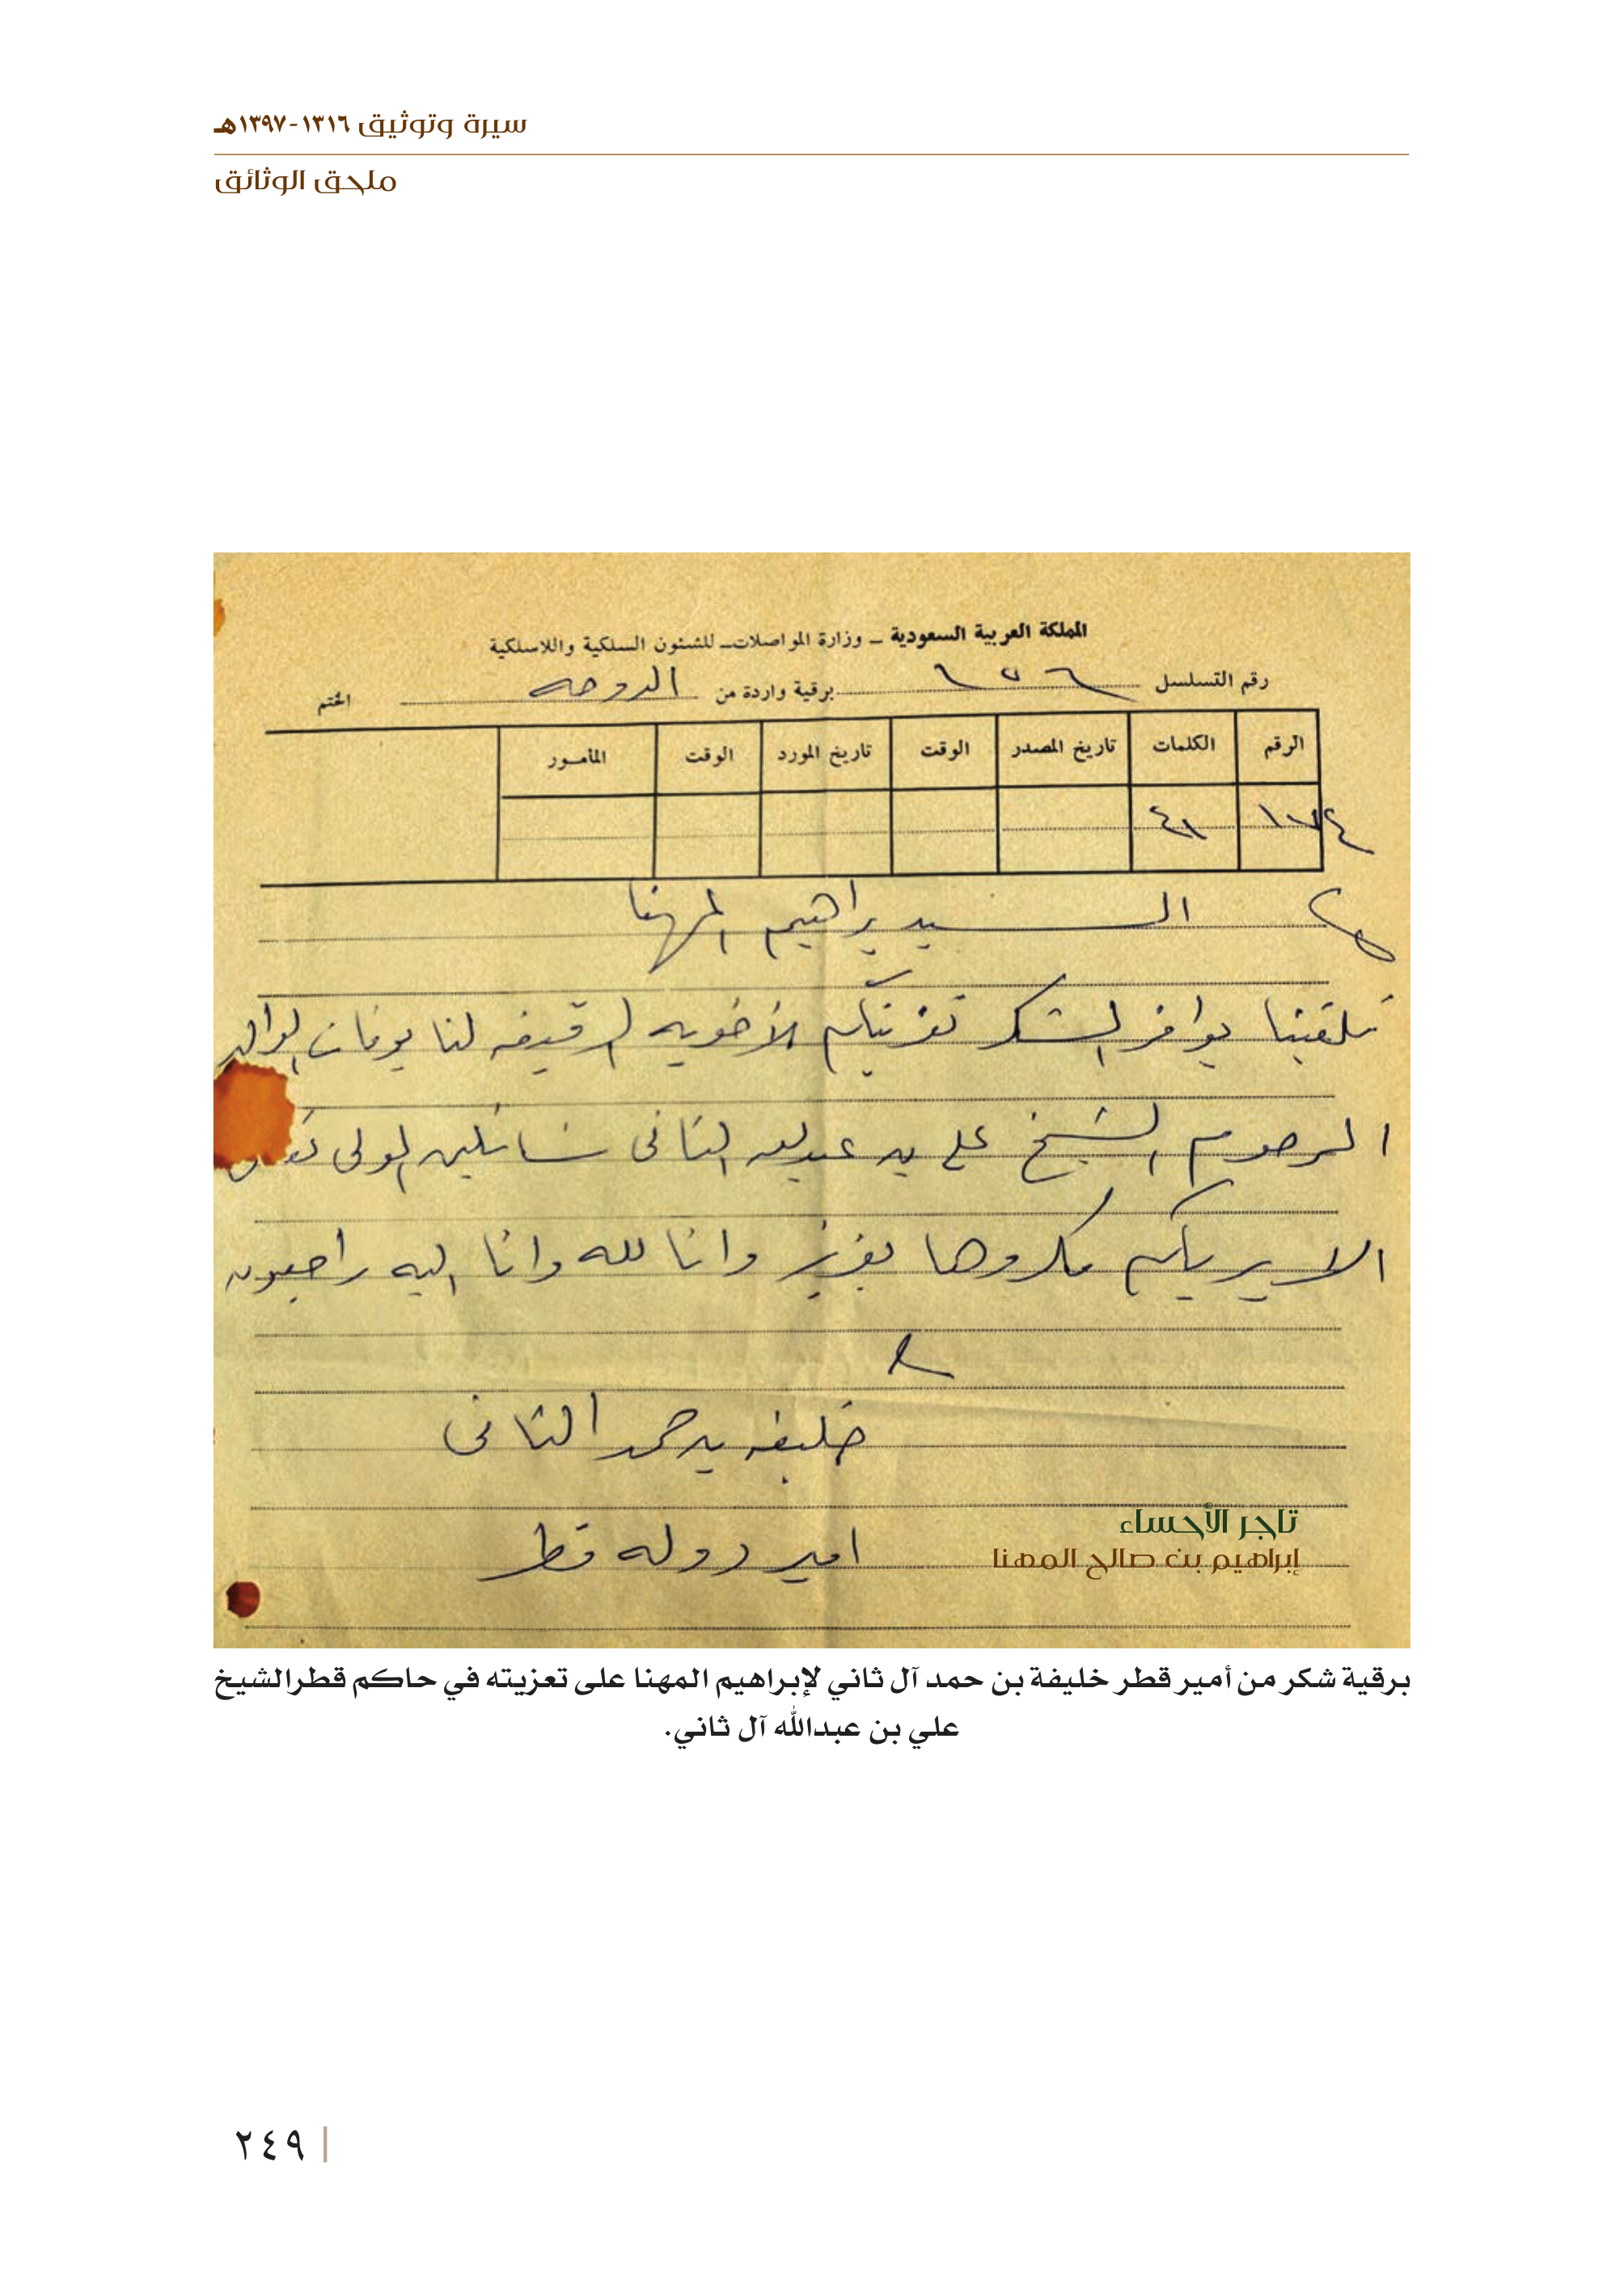 سيرة وتوثيق ١٣١٦-١٣٩٧هـ
ملحق الوثائق
المملكة العربية السعودية – وزارة المواصلات – للشئون السلكية واللاسلكية
رقم التسلسل برقية واردة من الدوحه الختم
الرقم الكلمات تاريخ المصدر الوقت تاريخ المورد الوقت المأمور
٤١
السيد براهيم المهنا
تلقينا بوافر الشكر تعزيتكم الأخويه الرقيقه لنا بوفات الوالد
المرحوم الشيخ علي بن عبدالله الثاني سائلين المولى
الا يريكم مكروها بعزيز وانا لله وانا اليه راجعون
خليفه بن حمد الثاني
امير دوله قطر
تاجر الأحساء
إبراهيم بن صالح المهنا
برقية شكر من أمير قطر خليفة بن حمد آل ثاني لإبراهيم المهنا على تعزيته في حاكم قطر الشيخ
علي بن عبدالله آل ثاني.
٢٤٩